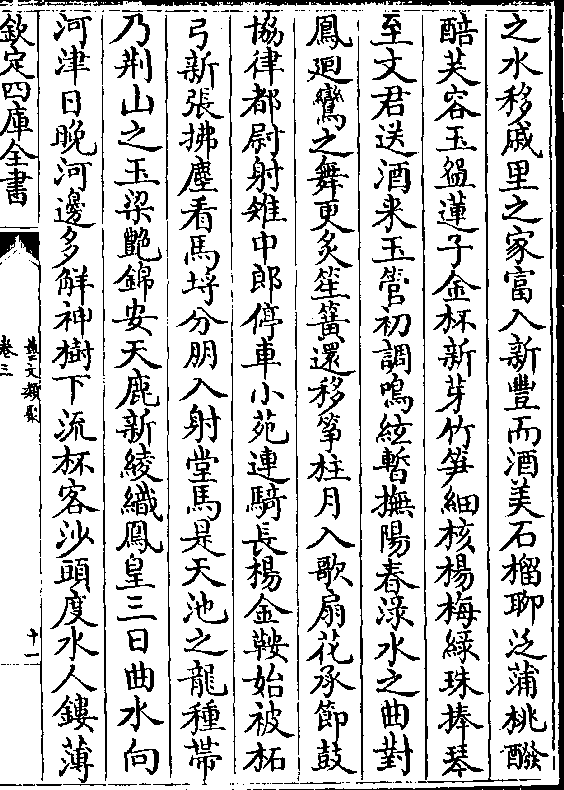 之水移戚里之家富入新豐而酒美石榴聊泛蒲桃醱
醅芙容玉盌蓮子金杯新芽竹笋細核楊梅緑珠捧琴
至文君送酒来玉管初調鳴絃暫撫陽春渌水之曲對
鳳廻鸞之舞更炙笙簧還移筝柱月入歌扇花承節鼓
協律都尉射雉中郎停車小苑連騎長楊金鞍始被柘
弓新張拂塵看馬埒分朋入射堂馬是天池之龍種帶
乃荆山之玉梁艶錦安天鹿新綾織鳳皇三日曲水向
河津日晚河邊多解神樹下流杯客沙頭度水人鏤薄
欽定四庫全書
藝文類聚
卷三
十一